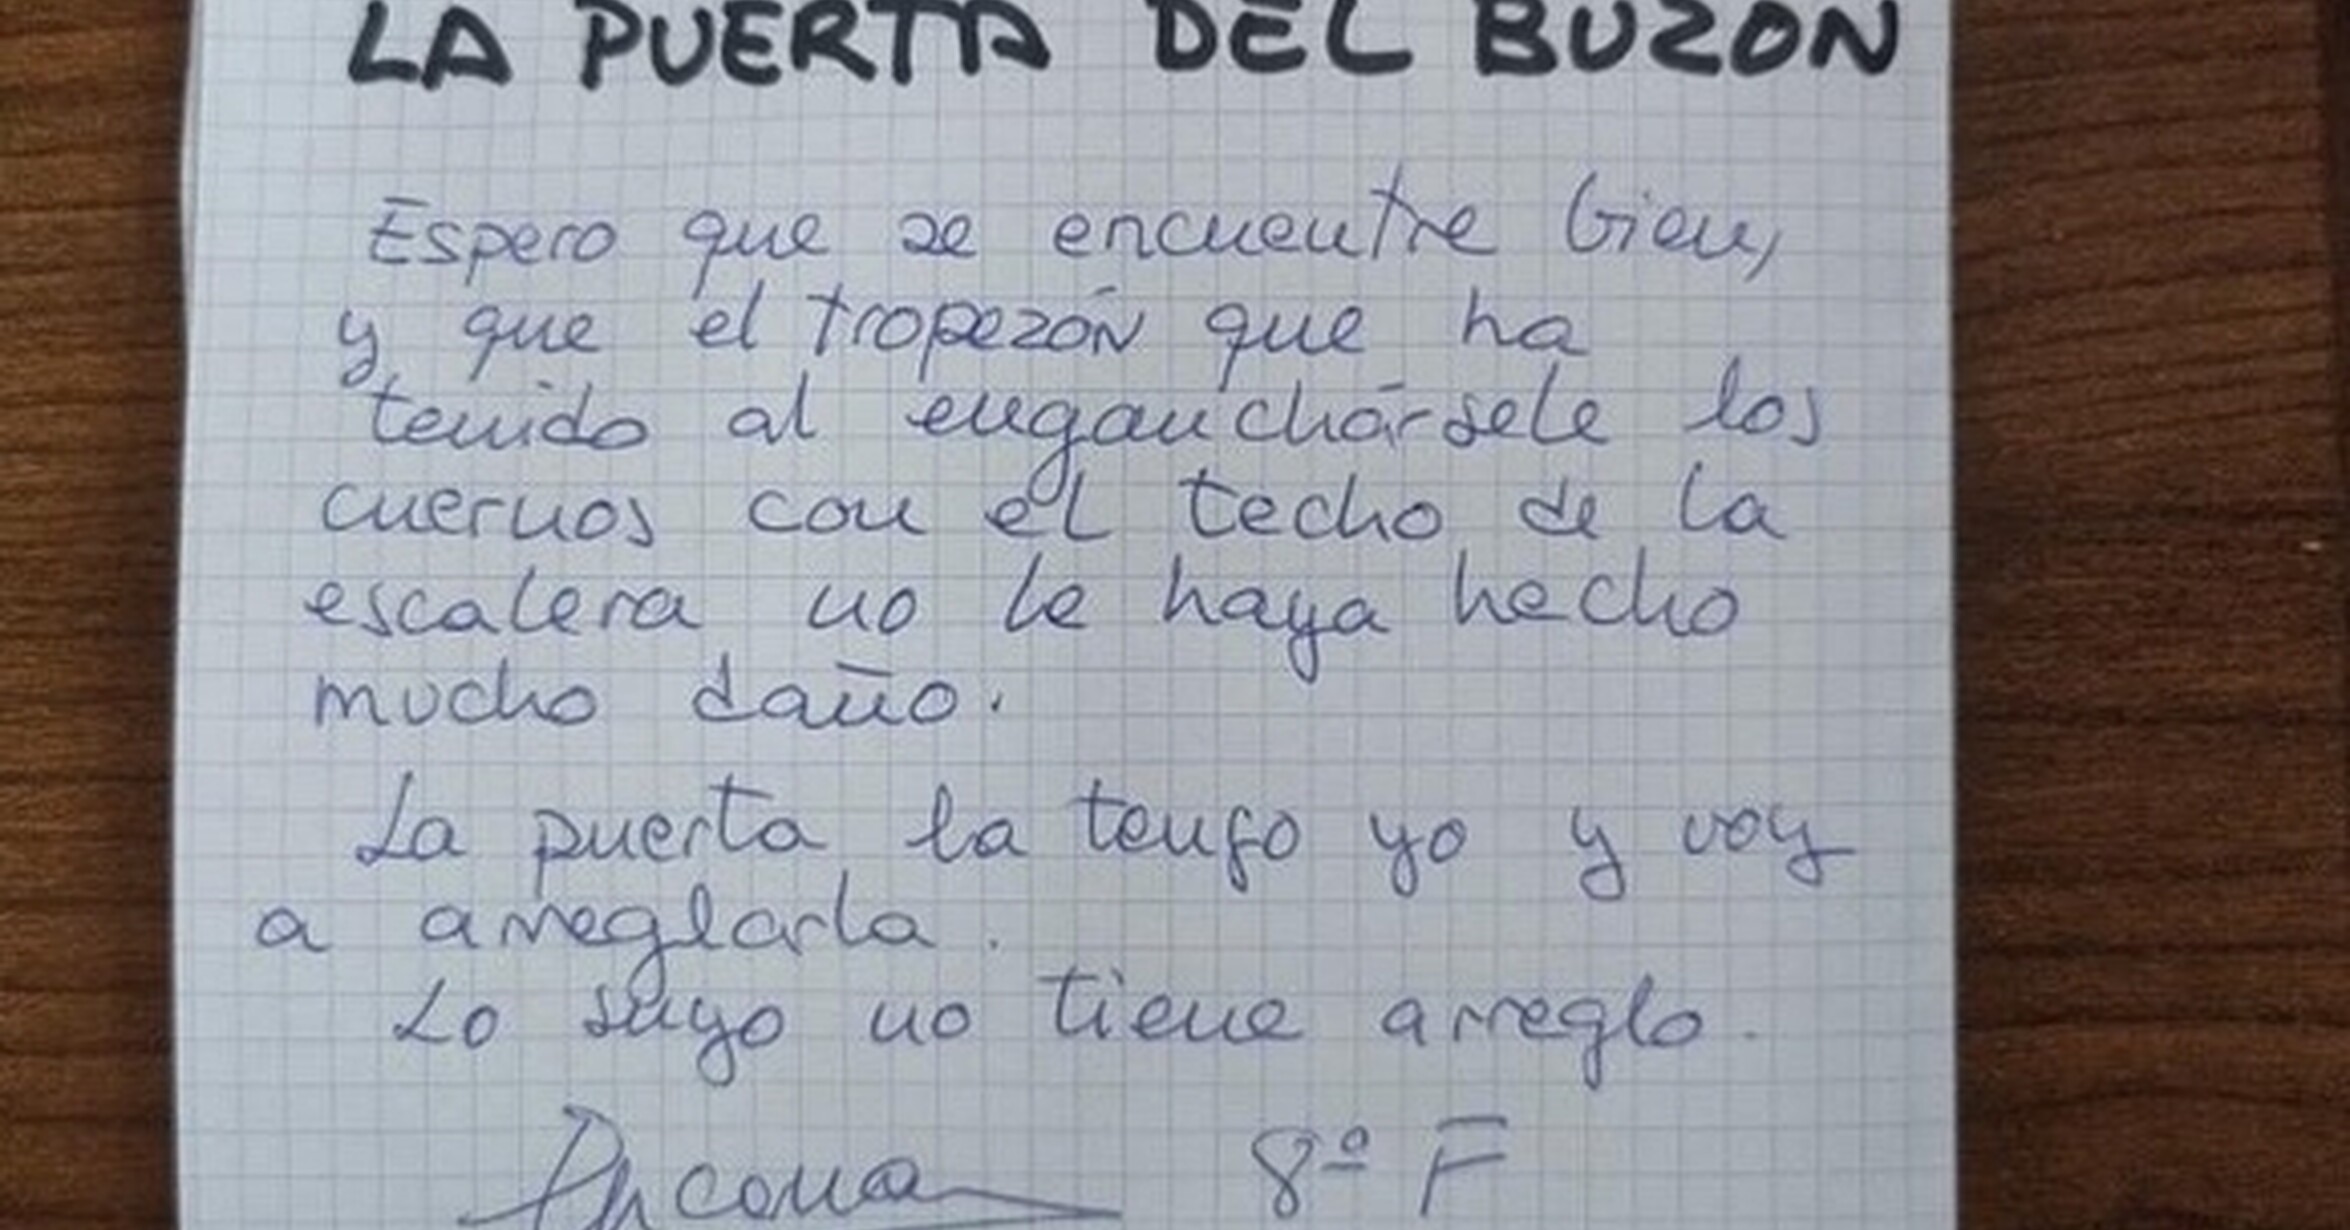 LA PUERTA DEL BUZON
Espero que se encuentre bien,
y que el tropezón que ha
tenido al enganchársele los
cuernos con el techo de la
escalera no le haya hecho
mucho daño.
La puerta la tengo yo y voy
a arreglarla.
Lo suyo no tiene arreglo.
8º F